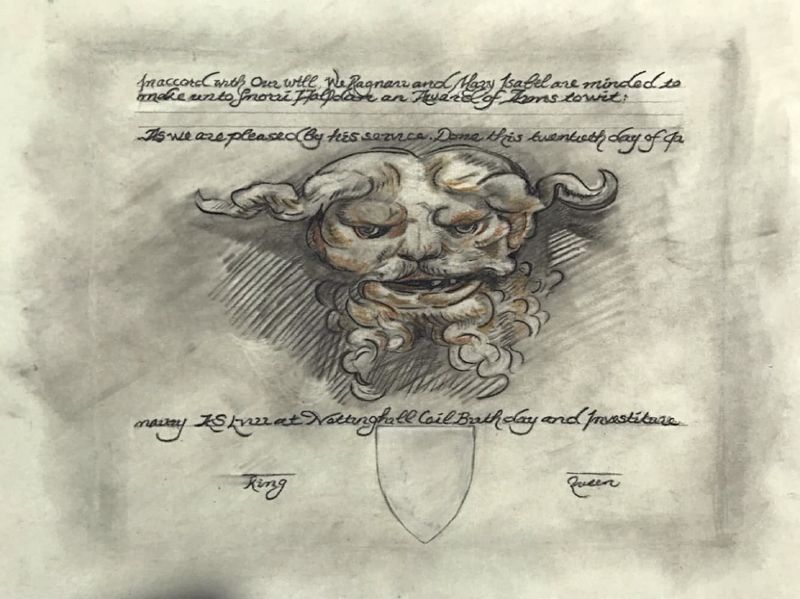 In accord with Our will, We Ragnarr and Mary Isabel are minded to
make unto Snorri Halfdan an Award of Arms to wit:
As we are pleased by his service. Done this twentieth day of Ja
nuary AS at Nottinghill Coil Birthday and Investiture
King
Queen